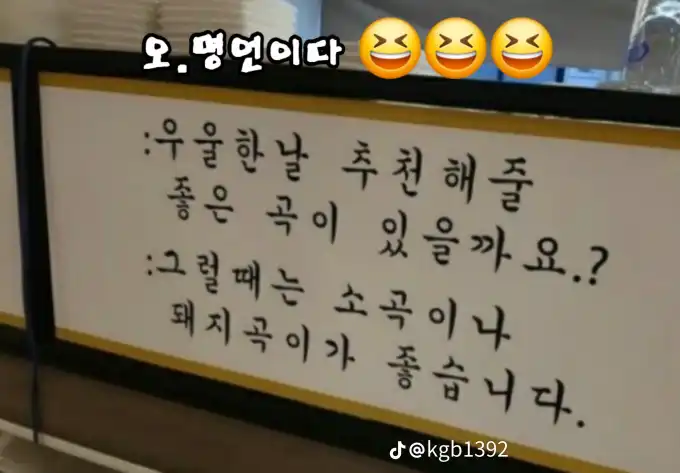 오.명언이다 😆😆😆
:우울한날 추천해줄
좋은 곡이 있을까요.?
:그럴때는 소곡이나
돼지곡이가 좋습니다.
@kgb1392